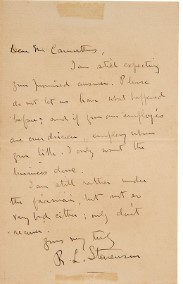 Dear Mr Carruthers,
I am still expecting
your promised answer. Please
do not let us have what happened
before; and if your own employés
are over driven, employ whom
you like. I only want the
business done.
I am still rather under
the
but not so
very bad either; only don't
Yours very truly
R. L. Stevenson